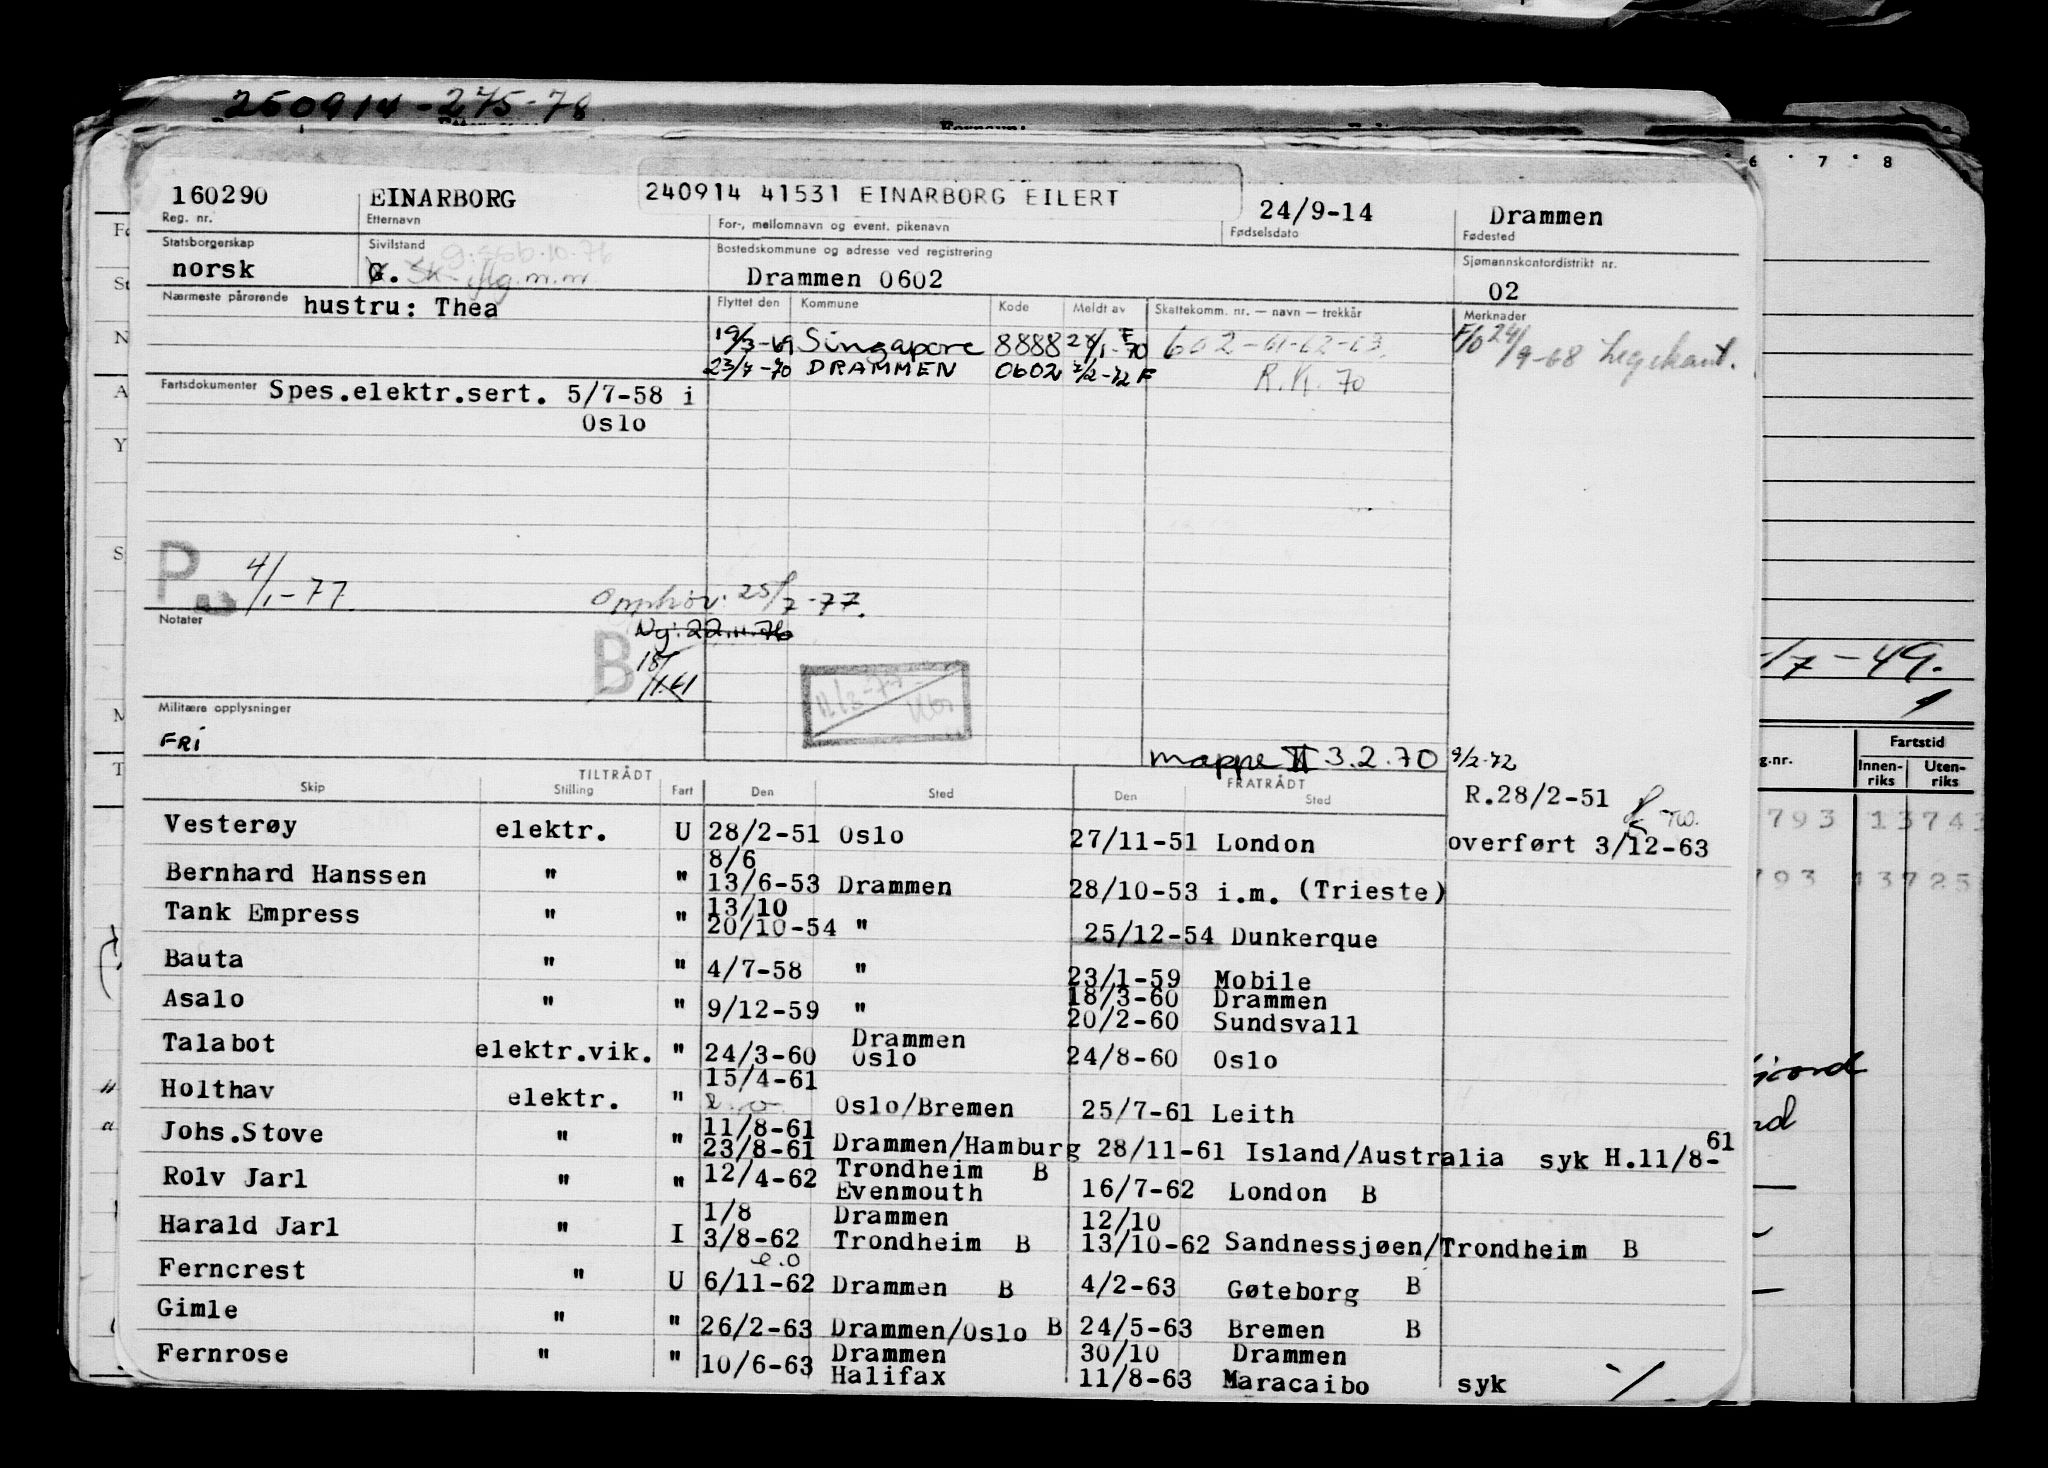 250914-275-78
160290 EINARBORG 240914 41531 EINARBORG EILERT 24/9-14 Drammen
Reg. nr. Etternavn For-, mellomnavn og event. pikenavn Fødselsdato Fødested
Statsborgerskap Sivilstand Bostedskommune og adresse ved registrering Sjømannskontordistrikt nr.
norsk G. Drammen 0602 02
Nærmeste pårørende hustru: Thea Flyttet den Kommune Kode Meldt av Skattekomm. nr. — navn — trekkår Merknader
19/3-69 Singapore 8888 602-61-62-63. F/O 24/9-68 Legekont.
23/7-70 DRAMMEN 0602 2/2-72 F R.K. 70
Fartsdokumenter Spes.elektr.sert. 5/7-58 i
Oslo
P 4/1-77
Opphør: 25/7-77.
Notater
Ny: 22.11.76
B 18/
Militære opplysninger
FRI
mappe II 3.2.70 9/2-72
TILTRÅDT FRATRÅDT
Skip Stilling Fart Den Sted Den Sted
R.28/2-51
Vesterøy elektr. U 28/2-51 Oslo 27/11-51 London overført 3/12-63
8/6
Bernhard Hanssen " " 13/6-53 Drammen 28/10-53 i.m. (Trieste)
13/10
Tank Empress " " 20/10-54 " 25/12-54 Dunkerque
Bauta " " 4/7-58 " 23/1-59 Mobile
18/3-60 Drammen
Asalo " " 9/12-59 " 20/2-60 Sundsvall
Drammen
Talabot elektr.vik. " 24/3-60 Oslo 24/8-60 Oslo
15/4-61
Holthav elektr. " Oslo/Bremen 25/7-61 Leith
11/8-61
Johs.Stove " " 23/8-61 Drammen/Hamburg 28/11-61 Island/Australia syk H.11/8-61
Trondheim B
Rolv Jarl " " 12/4-62 Evenmouth 16/7-62 London B
1/8 Drammen 12/10
Harald Jarl " I 3/8-62 Trondheim B 13/10-62 Sandnessjøen/Trondheim B
e.o
Ferncrest " U 6/11-62 Drammen B 4/2-63 Gøteborg B
Gimle " " 26/2-63 Drammen/Oslo B 24/5-63 Bremen B
Drammen 30/10 Drammen
Fernrose " " 10/6-63 Halifax 11/8-63 Maracaibo syk
6 7 8
/7-49.
g.nr. Fartstid
Innenriks Utenriks
793 13743
793 13725